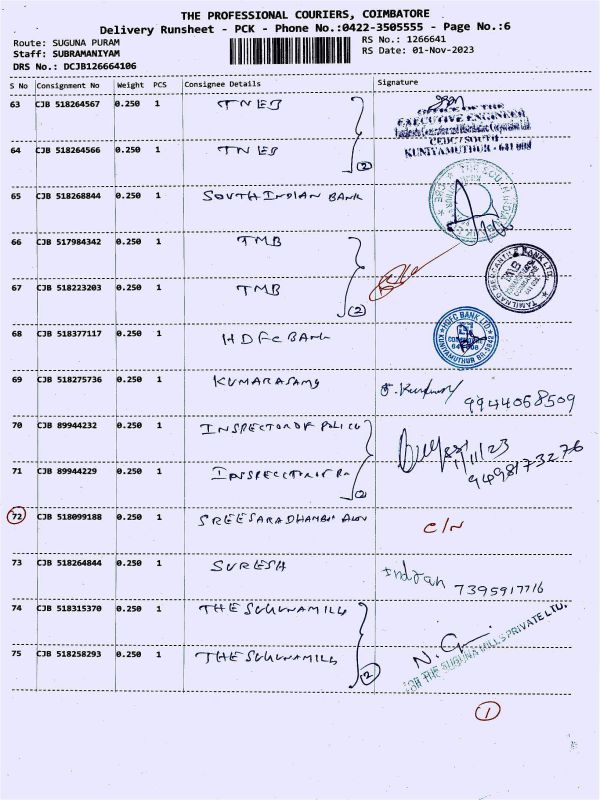 THE PROFESSIONAL COURIERS, COIMBATORE
Delivery Runsheet - PCK - Phone No.:0422-3505555 - Page No.:6
Route: SUGUNA PURAM
Staff: SUBRAMANIYAM
DRS No.: DCJB126664106
RS No.: 1266641
RS Date: 01-Nov-2023
S No Consignment No Weight PCS Consignee Details Signature
63 CJB 518264567 0.250 1 TNEB
OFFICE OF THE
EXECUTIVE ENGINEER
CEDC / SOUTH
KUNIYAMUTHUR - 641 008
64 CJB 518264566 0.250 1 TNEB
(2)
65 CJB 518268844 0.250 1 SOUTH INDIAN BANK
THE SOUTH INDIA
66 CJB 517984342 0.250 1 TMB
67 CJB 518223203 0.250 1 TMB
(2)
TAMILNAD MERCANTILE BANK LTD.
68 CJB 518377117 0.250 1 HDFC BANK
HDFC BANK LTD
COIMBATORE
641 008
KUNIYAMUTHUR BR.
69 CJB 518275736 0.250 1 KUMARASAMY
9944058509
70 CJB 89944232 0.250 1 INSPECTOR OF POLICE
1/11/23
9498173276
71 CJB 89944229 0.250 1
(2)
72 CJB 518099188 0.250 1
C/N
73 CJB 518264844 0.250 1 SURESH
7395917716
74 CJB 518315370 0.250 1 THE SUGUNA MILLS
75 CJB 518258293 0.250 1 THE SUGUNA MILLS
(2)
FOR THE SUGUNA MILLS PRIVATE LTD.
1